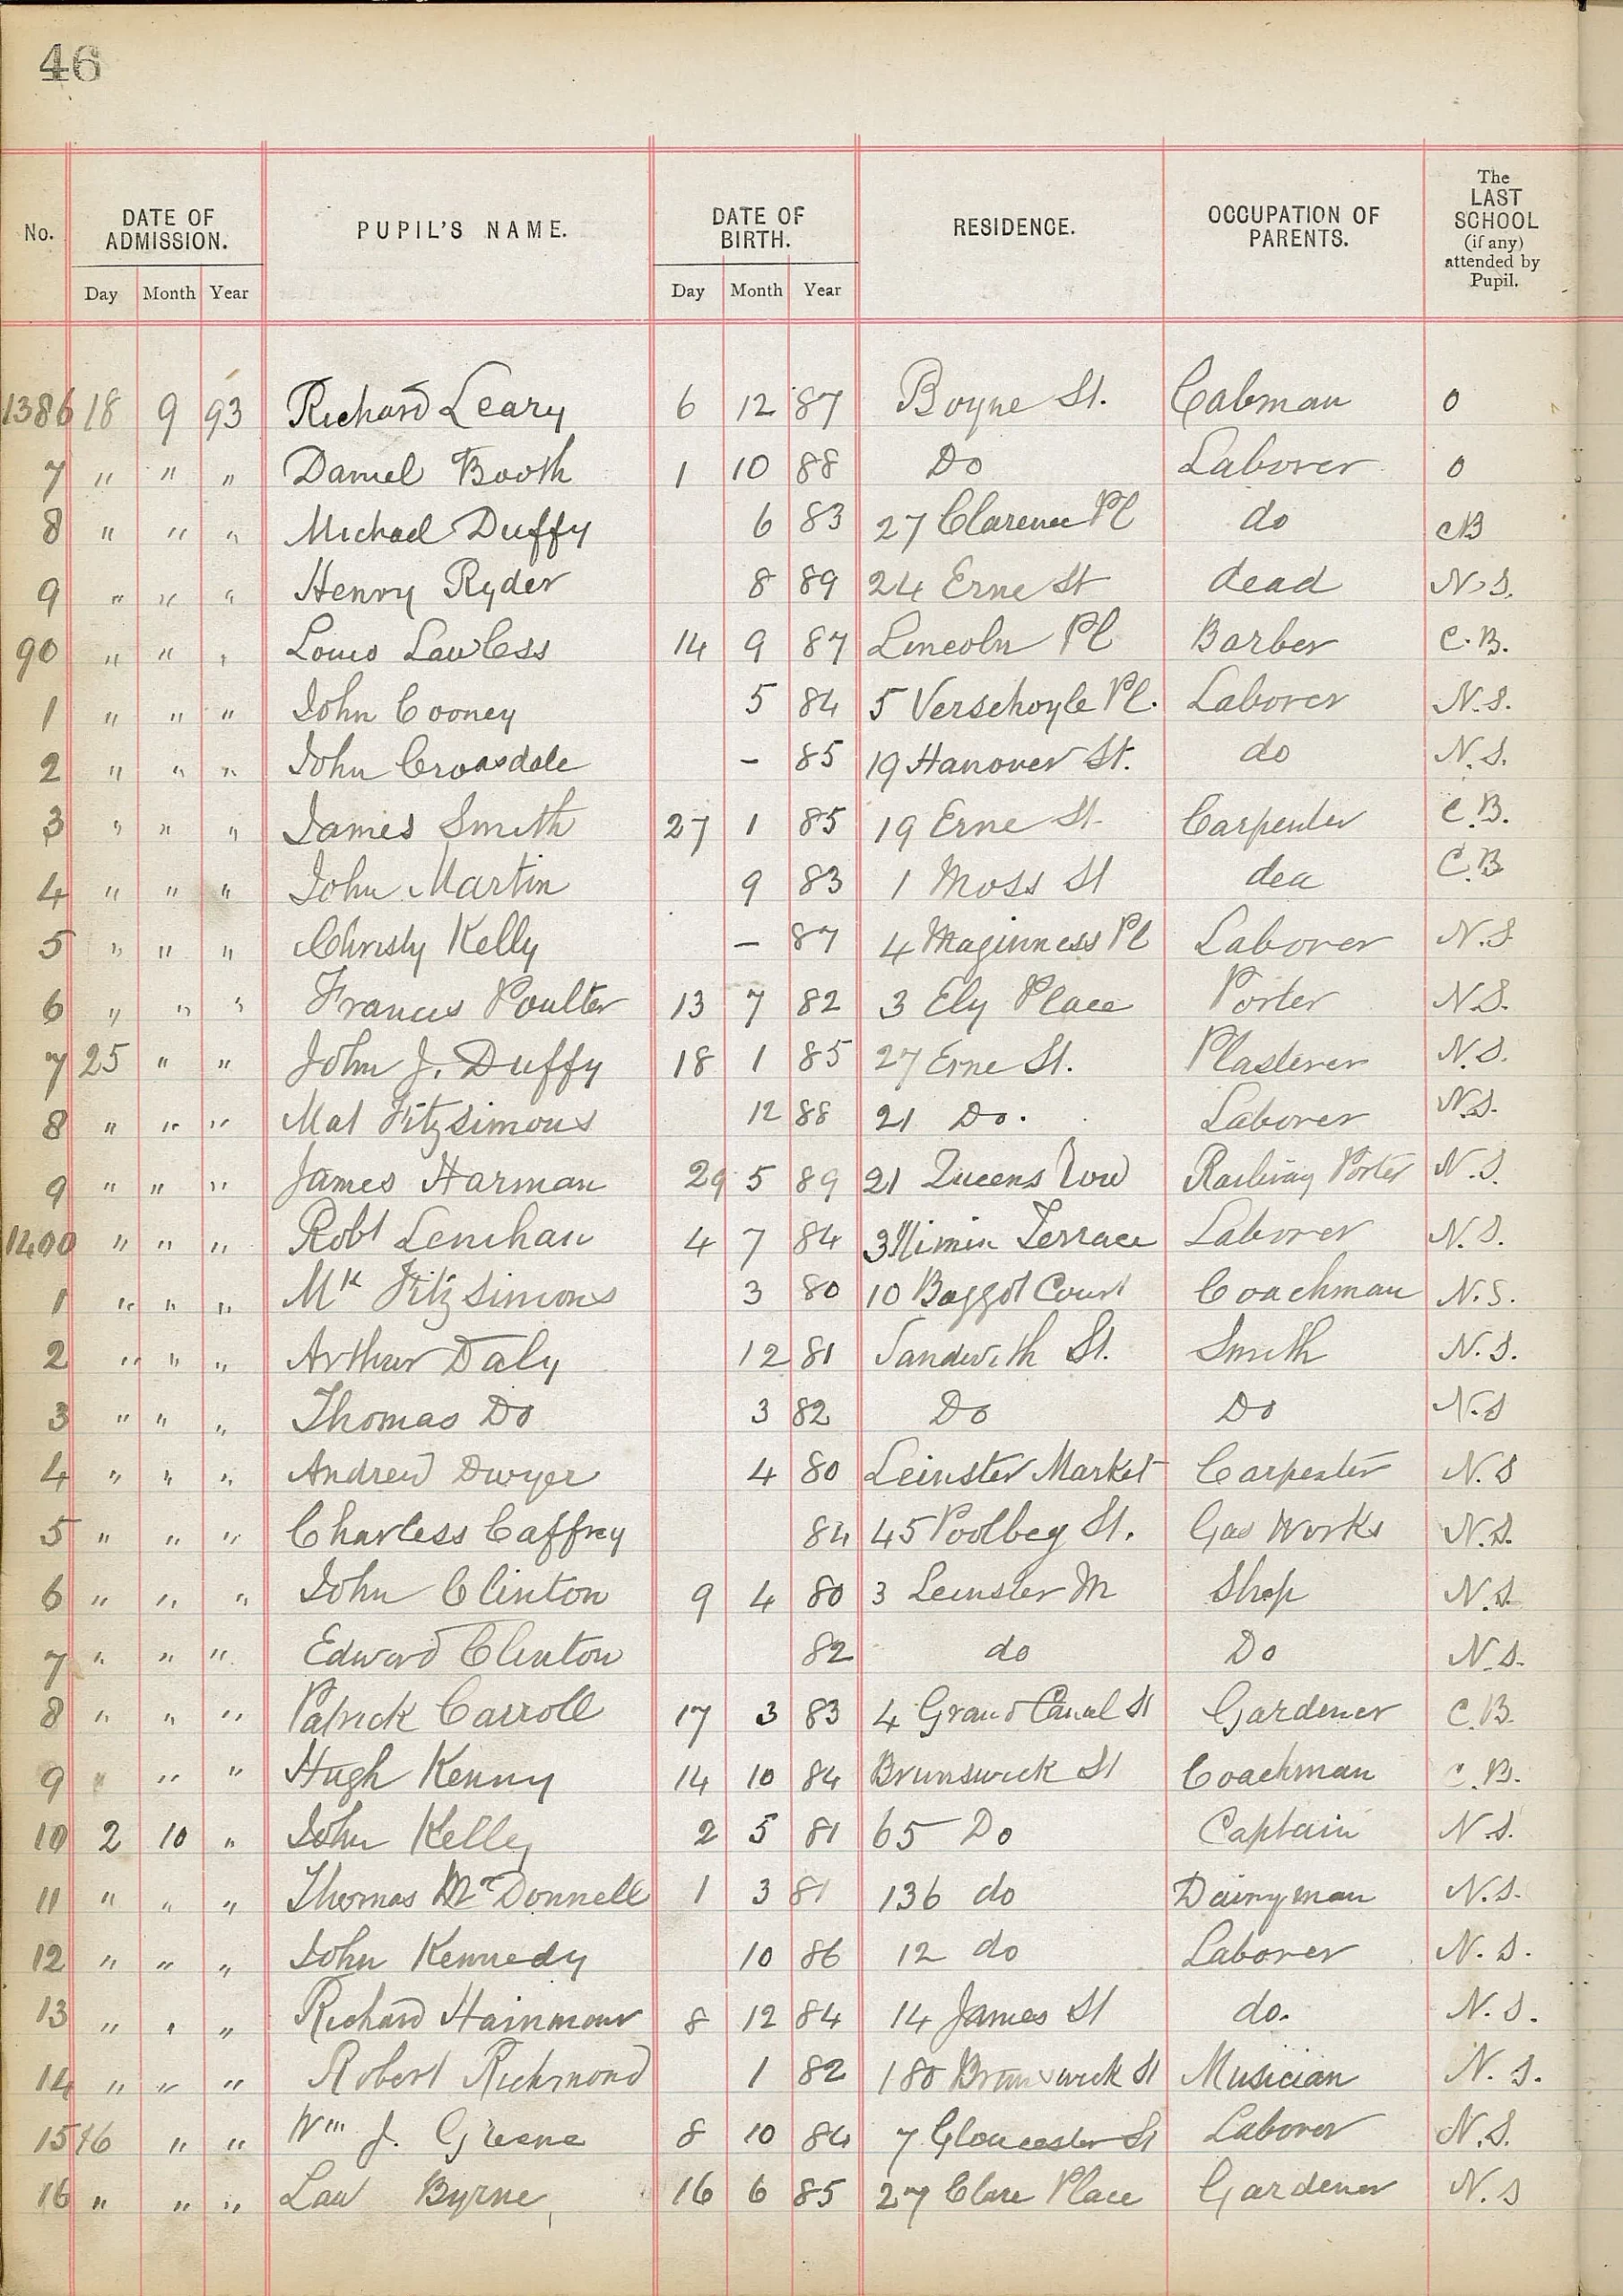 46
No. DATE OF ADMISSION. PUPIL'S NAME. DATE OF BIRTH. RESIDENCE. OCCUPATION OF PARENTS. The LAST SCHOOL (if any) attended by Pupil.
Day Month Year Day Month Year
1386 18 9 93 Richard Leary 6 12 87 Boyne St. Cabman 0
7 " " " Daniel Booth 1 10 88 Do Laborer 0
8 " " " Michael Duffy 6 83 27 Clarence Pl do CB
9 " " " Henry Ryder 8 89 24 Erne St dead N.S.
90 " " " Louis Lawless 14 9 87 Lincoln Pl Barber C.B.
1 " " " John Cooney 5 84 5 Verschoyle Pl. Laborer N.S.
2 " " " John Croasdale - 85 19 Hanover St. do N.S.
3 " " " James Smith 27 1 85 19 Erne St. Carpenter C.B.
4 " " " John Martin 9 83 1 Moss St dea C.B
5 " " " Christy Kelly - 87 4 Maginness Pl Laborer N.S.
6 " " " Francis Poulter 13 7 82 3 Ely Place Porter N.S.
7 25 " " John J. Duffy 18 1 85 27 Erne St. Plasterer N.S.
8 " " " Mat Fitzsimons 12 88 21 Do. Laborer N.S.
9 " " " James Harman 29 5 89 21 Queens Row Railway Porter N.S.
1400 " " " Robt Lenihan 4 7 84 3 Terrace Laborer N.S.
1 " " " Mk Fitzsimons 3 80 10 Baggot Court Coachman N.S.
2 " " " Arthur Daly 12 81 Sandwith St. Smith N.S.
3 " " " Thomas Do 3 82 Do Do N.S
4 " " " Andrew Dwyer 4 80 Leinster Market Carpenter N.S
5 " " " Charless Caffrey 84 45 Poolbeg St. Gas Works N.S.
6 " " " John Clinton 9 4 80 3 Leinster M Shop N.S.
7 " " " Edward Clinton 82 do Do N.S.
8 " " " Patrick Carroll 17 3 83 4 Grand Canal St Gardener C.B.
9 " " " Hugh Kenny 14 10 84 Brunswick St Coachman C.B.
10 2 10 " John Kelly 2 5 81 65 Do Captain N.S.
11 " " " Thomas McDonnell 1 3 81 136 do Dairyman N.S.
12 " " " John Kennedy 10 86 12 do Laborer N.S.
13 " " " Richard 8 12 84 14 James St do. N.S.
14 " " " Robert Richmond 1 82 180 Brunswick St Musician N.S.
15 16 " " Wm J. Greene 8 10 84 7 Gloucester St Laborer N.S.
16 " " " Law Byrne 16 6 85 27 Clare Place Gardener N.S